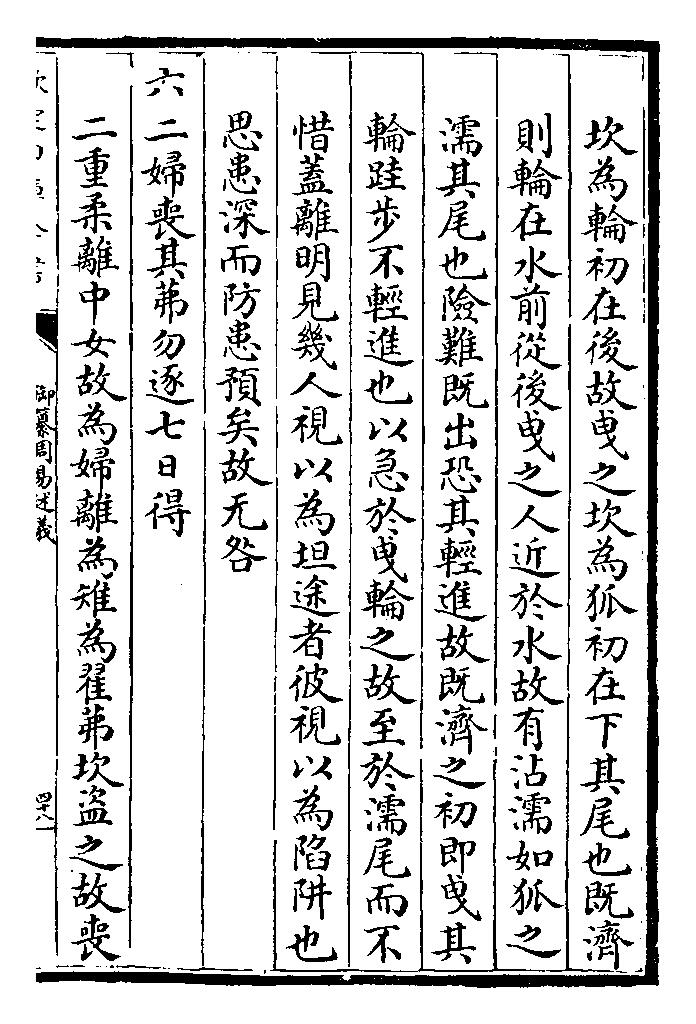 坎為輪初在後故曳之坎為狐初在下其尾也既濟
則輪在水前從後曳之人近於水故有沾濡如狐之
濡其尾也險難既出恐其輕進故既濟之初即曳其
輪跬步不輕進也以急於曳輪之故至於濡尾而不
惜蓋離明見幾人視以為坦途者彼視以為陷阱也
思患深而防患預矣故无咎
六二婦喪其茀勿逐七日得
二重柔離中女故為婦離為雉為翟茀坎盜之故喪
御纂周易述義
四十八